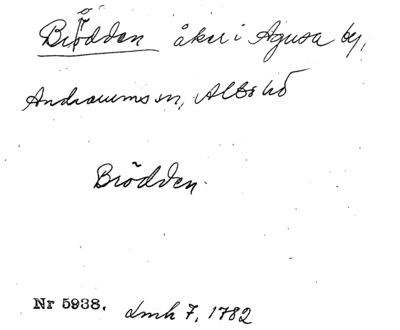 Brödden åker i Agusa by,
Andrarums sn, Albo hd
Brödden.
Nr 5938. lmh 7, 1782